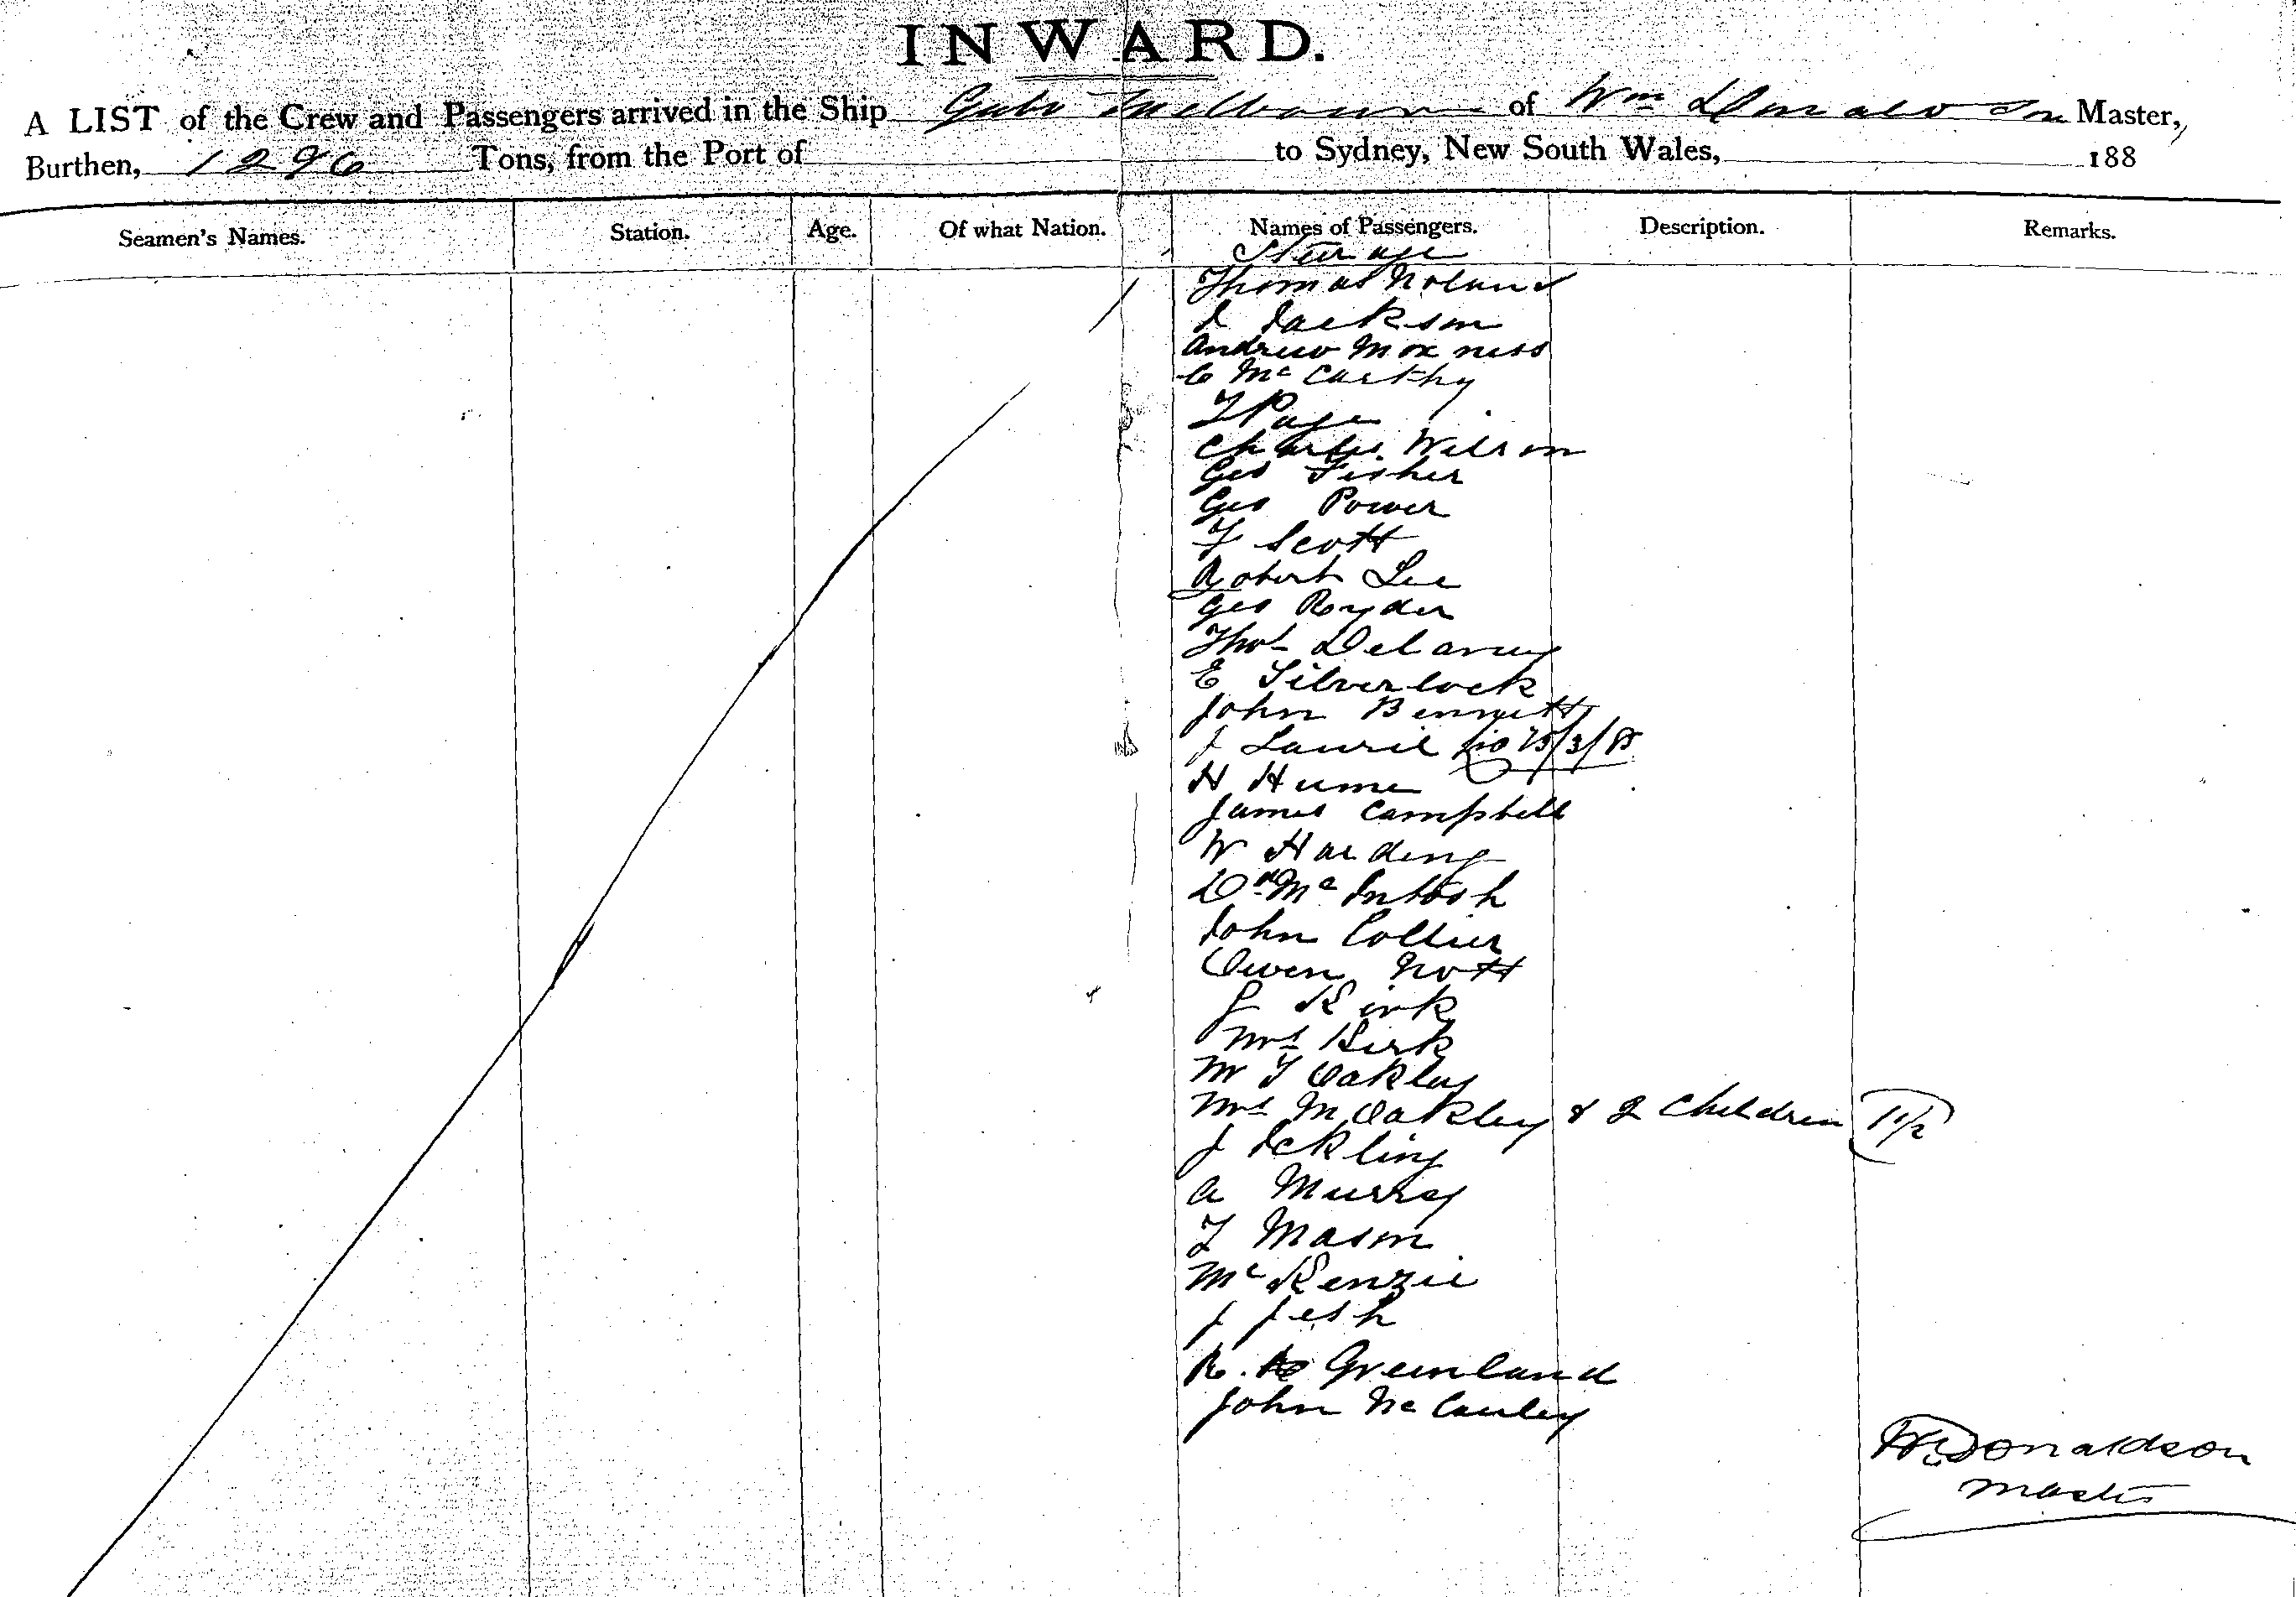 INWARD.
A LIST of the Crew and Passengers arrived in the Ship Gabo Melbourne of Wm Donaldson Master,
Burthen, 1296 Tons, from the Port of to Sydney, New South Wales, 188
Seamen's Names. Station. Age. Of what Nation. Names of Passengers. Description. Remarks.
Steerage
Thomas Noland
I Jackson
Andrew Moxness
C McCarthy
T Page
Charles Wilson
Geo Fisher
Geo Power
F Scott
Robert Lee
Geo Ryder
Thos Delaney
E Silverlock
John Bennett
J Laurie
H Hume
James Campbell
W Harding
Dn McIntosh
John Collier
Owen Nott
J Kirk
Mrs Kirk
Mr T Oakley
Mrs M Oakley & 2 Children
J Ickling
A Murray
T Mason
McKenzie
J Jesh
R. Greenland
John McCauley
Wm Donaldson
Master